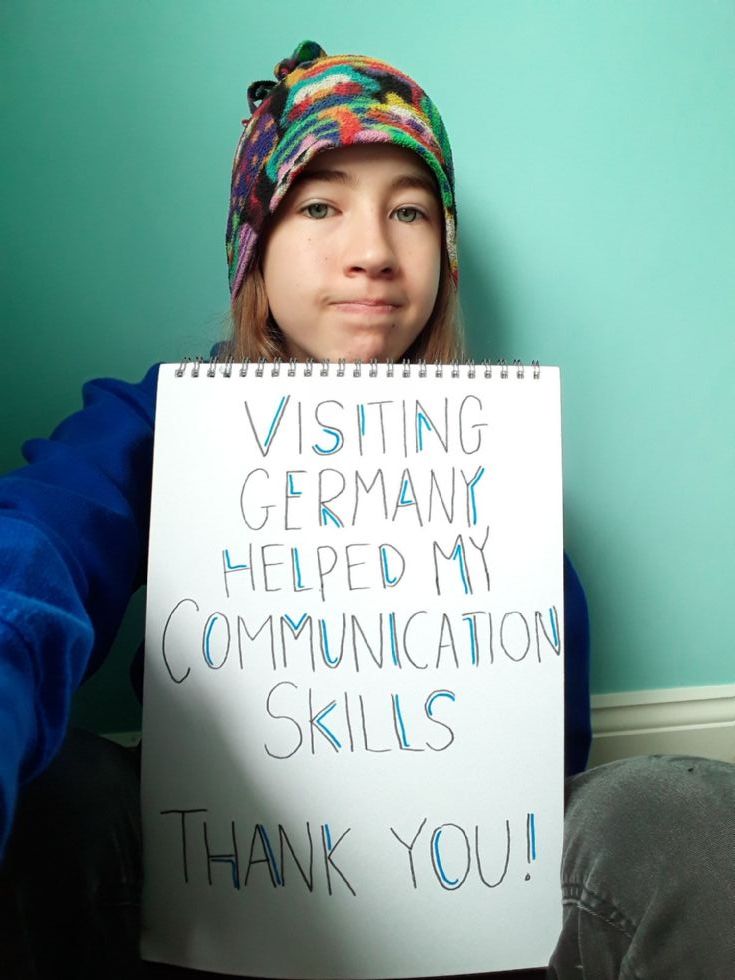 VISITING
GERMANY
HELPED MY
COMMUNICATION
SKILLS
THANK YOU!